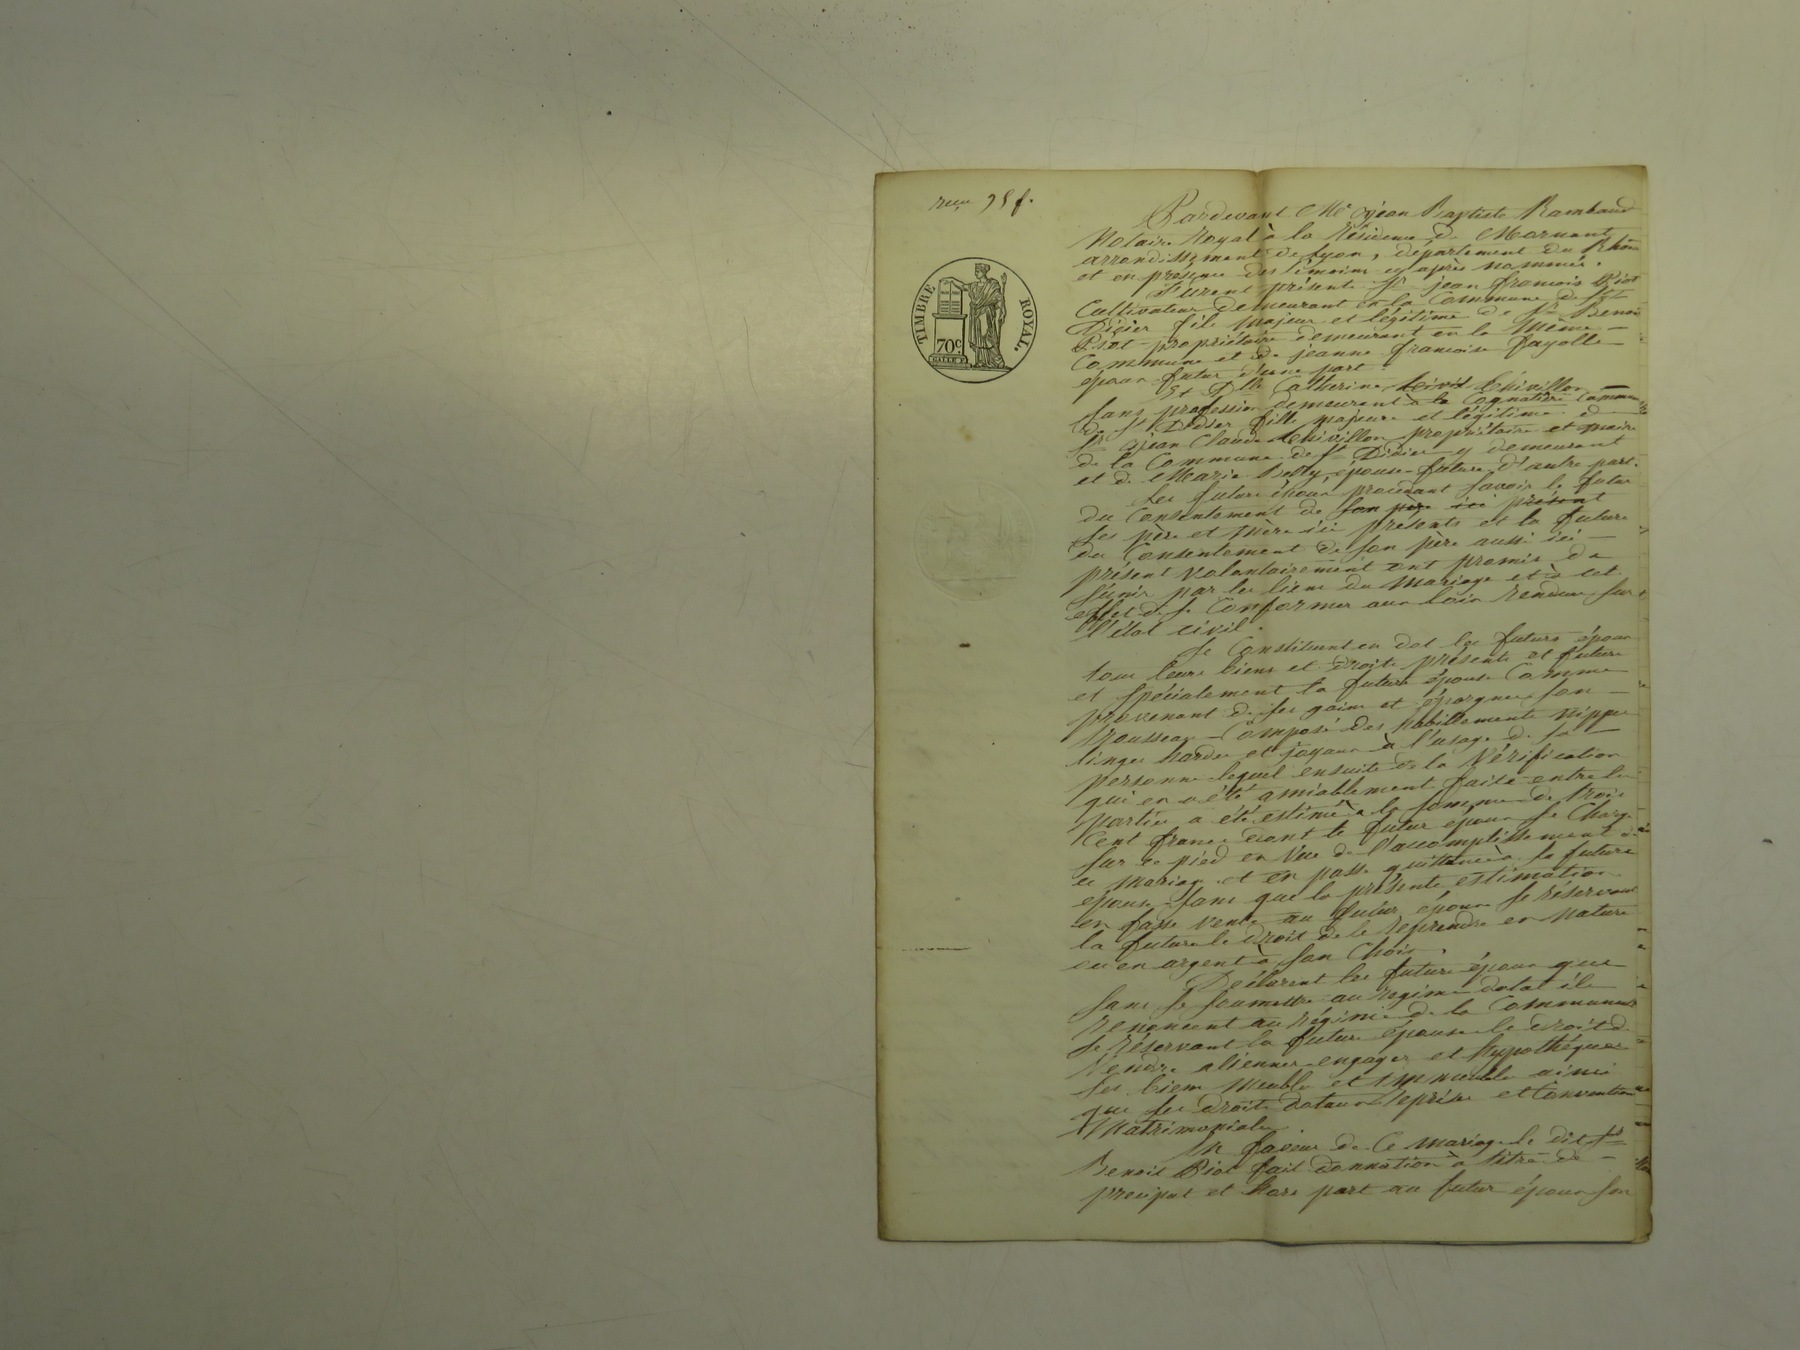 reçu 95 f.
TIMBRE ROYAL.
70c
Pardevant Me Jean Baptiste Rambaud
Notaire Royal à la Résidence de Mornant
arrondissement de Lyon, département du Rhône
et en présence des témoins cy après nommés.
Furent présents Sr jean françois Piot
Cultivateur demeurant en la Commune de St
Didier fils majeur et légitime de Sr Benoit
Piot propriétaire demeurant en la Même
Commune et de jeanne françoise fayolle
époux futur d'une part
Et Dlle Catherine Chivillon
sans profession demeurant à la commune
de St Didier fille majeure et légitime de
Sr Jean Claude Chivillon propriétaire et maire
de la Commune de St Didier y demeurant
et de Marie épouse future d'autre part.
Les futurs époux procédant savoir le futur
du Consentement de son père ici présent
ses père et Mère ici présents et la future
du Consentement de son père aussi ici
présent volontairement ont promis de
s'unir par les liens du Mariage et à cet
effet de se Conformer aux loix rendues sur
l'état civil.
Se Constituent en dot les futurs époux
tous leurs biens et droits présents et futurs
et spécialement la future épouse Comme
provenant de ses gains et épargnes son
trousseau Composé des habillements nippes
linges hardes et joyaux à l'usage de sa
personne lequel ensuite de la Vérification
qui en a été amiablement faite entre les
parties a été estimé à la somme de trois
Cent francs dont le futur époux se Charge
sur ce pied en Vue de l'accomplissement de
ce mariage et en passe quittance à la future
épouse sans que la présente estimation
en fasse vente au futur époux se réservant
la future le droit de le reprendre en Nature
ou en argent à son Choix.
Déclarent les futurs époux que
sans se soumettre au régime dotal ils
Renoncent au Régime de la Communauté
se réservant la future épouse le droit de
Vendre aliéner engager et hypothéquer
ses biens Meubles et immeubles ainsi
que ses droits dotaux reprises et Conventions
Matrimoniales.
En faveur de Ce mariage le dit Sr
Benoit Piot fait donnation à titre de
preciput et hors part au futur époux son